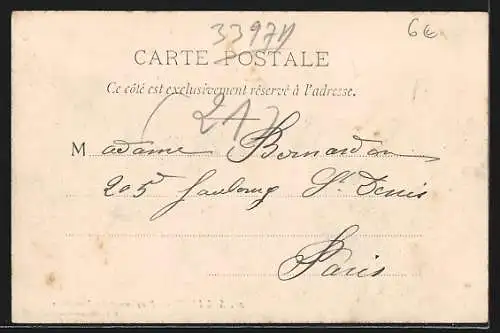 33971
6€
CARTE POSTALE
Ce côté est exclusivement réservé à l'adresse.
(21)
Madame Bernardon
205 faubourg St Denis
Paris